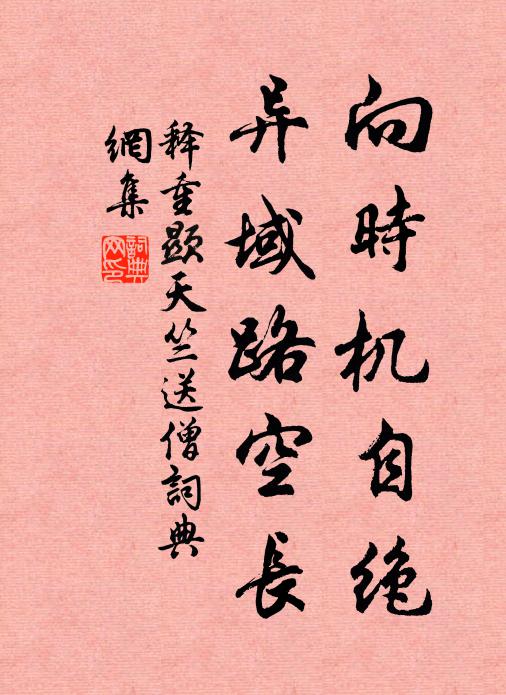 向時机自绝
异域路空長
释重顯天竺送僧詞典
網集
詞典网印